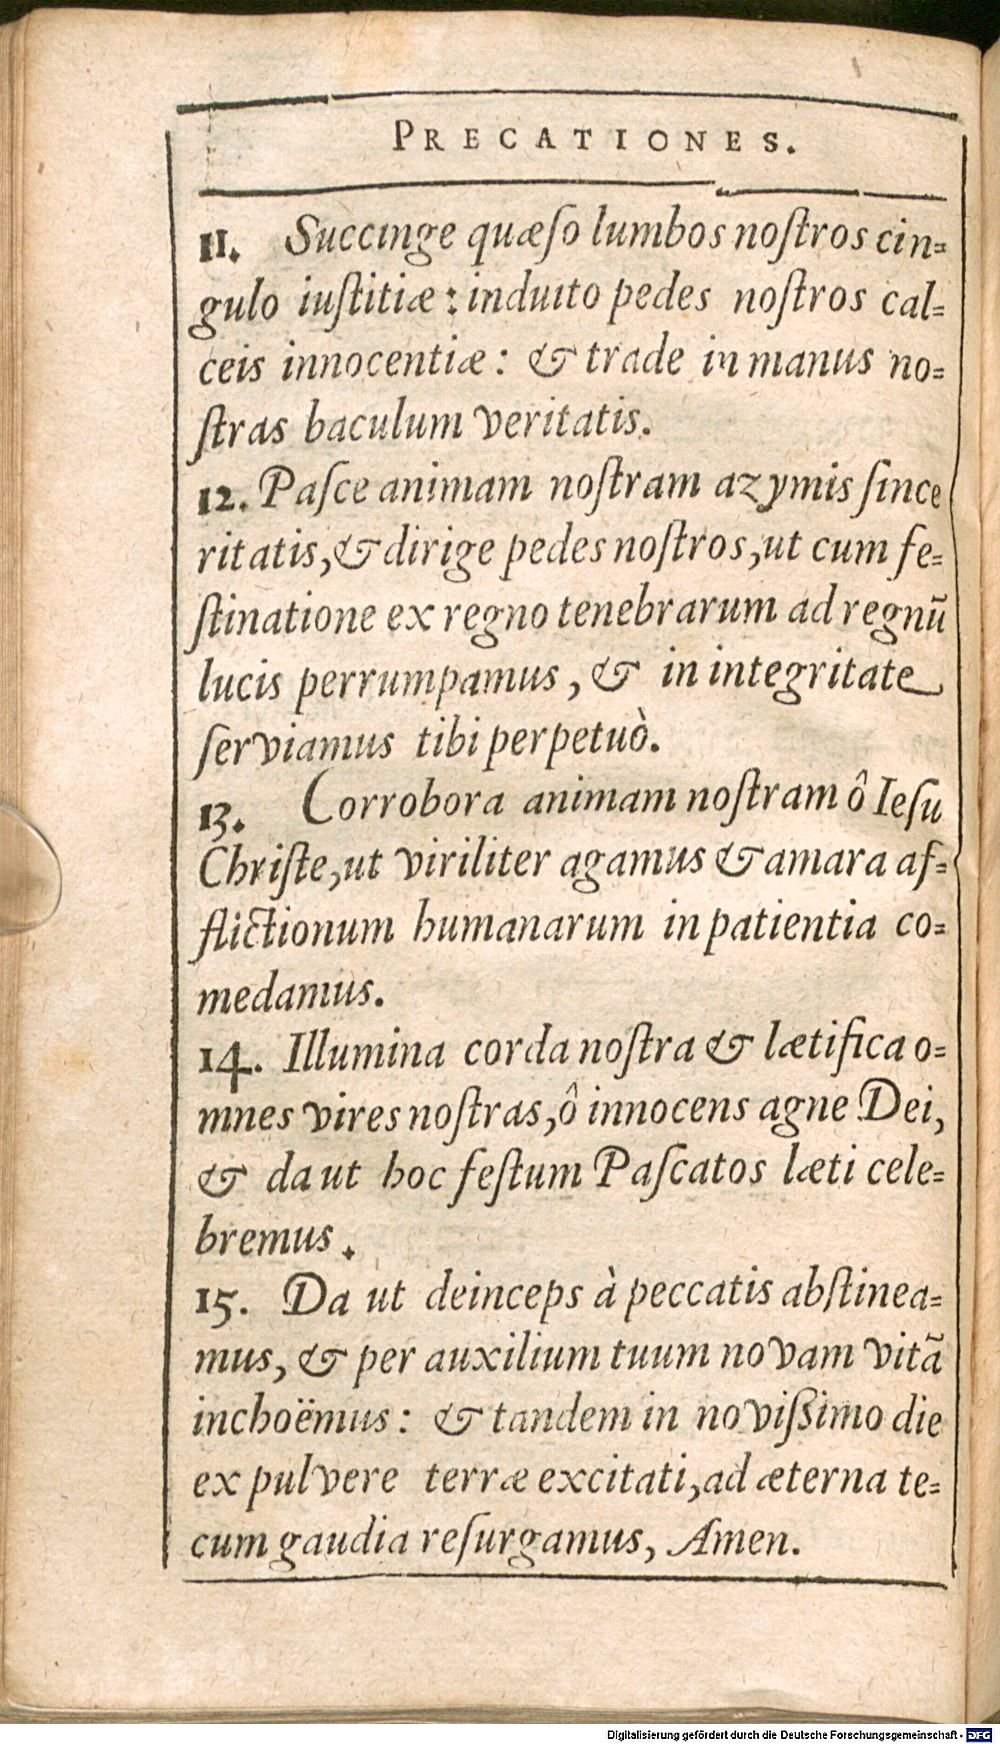 PRECATIONES.
11. Succinge quæſo lumbos noſtros cin=
gulo iuſtitiæ: induito pedes noſtros cal=
ceis innocentiæ: & trade in manus no=
ſtras baculum veritatis.
12. Paſce animam noſtram azymis ſince
ritatis, & dirige pedes noſtros, ut cum fe=
ſtinatione ex regno tenebrarum ad regnũ
lucis perrumpamus, & in integritate
ſerviamus tibi perpetuò.
13. Corrobora animam noſtram ô Ieſu
Chriſte, ut viriliter agamus & amara af=
flictionum humanarum in patientia co=
medamus.
14. Illumina corda noſtra & lætifica o=
mnes vires noſtras, ô innocens agne Dei,
& da ut hoc feſtum Paſcatos læti cele=
bremus.
15. Da ut deinceps à peccatis abſtinea=
mus, & per auxilium tuum novam vitã
inchoëmus: & tandem in noviſſimo die
ex pulvere terræ excitati, ad æterna te=
cum gaudia reſurgamus, Amen.
Digitalisierung gefördert durch die Deutsche Forschungsgemeinschaft - DFG